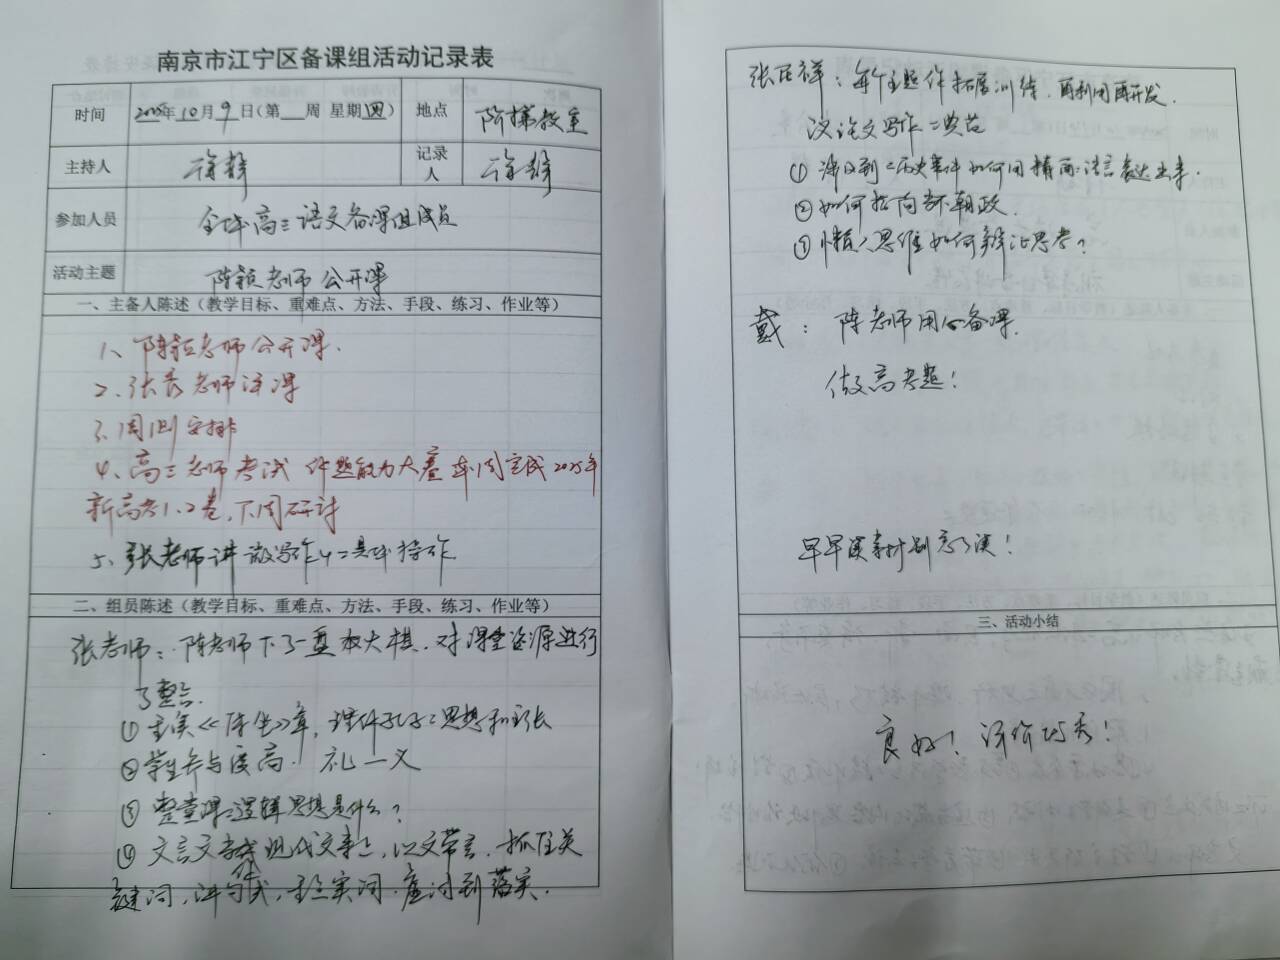 南京市江宁区备课组活动记录表
时间 2025年10月9日(第 周 星期四) 地点 阶梯教室
主持人 徐静 记录人 徐静
参加人员 全体高三语文备课组成员
活动主题 陈颖老师公开课
一、主备人陈述（教学目标、重难点、方法、手段、练习、作业等）
1、陈颖老师公开课.
2、张 老师评课
3、周测安排
4、高三老师考试 作题能力大赛 本周完成2025年
新高考1.2卷,下周研讨
5、张老师讲 写作 具体操作
二、组员陈述（教学目标、重难点、方法、手段、练习、作业等）
张老师：陈老师下了一盘 大棋.对课堂资源进行
了整合.
① 《侍坐》章, 孔子 思想和主张
②学生参与度高. 礼一义
③ 整堂课 逻辑思想是什么?
④ 文言文 现代文 , 以文带言.抓住关
键词,讲句式, 实词. 落实.
张 祥：每个主题作拓展训练.再利用再开发.
议论文写作
① 历史事件如何用精 语言表达出来.
②如何指向 朝政.
③ 人思维如何辩证思考?
戴：陈老师用心备课.
做高考题!
早早读书计划忘了读!
三、活动小结
良好! 评价优秀!